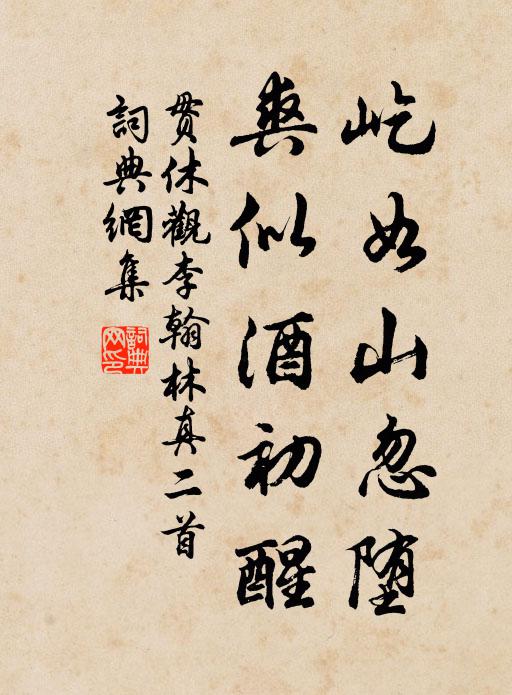 屹如山忽堕
爽似酒初醒
贯休觀李翰林真二首
詞典網集
詞典網印